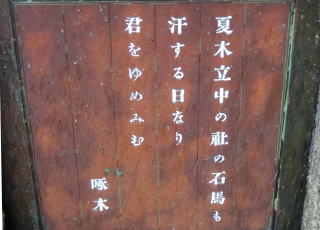 夏木立中の社の石馬も
汗する日なり
君をゆめみむ
啄木